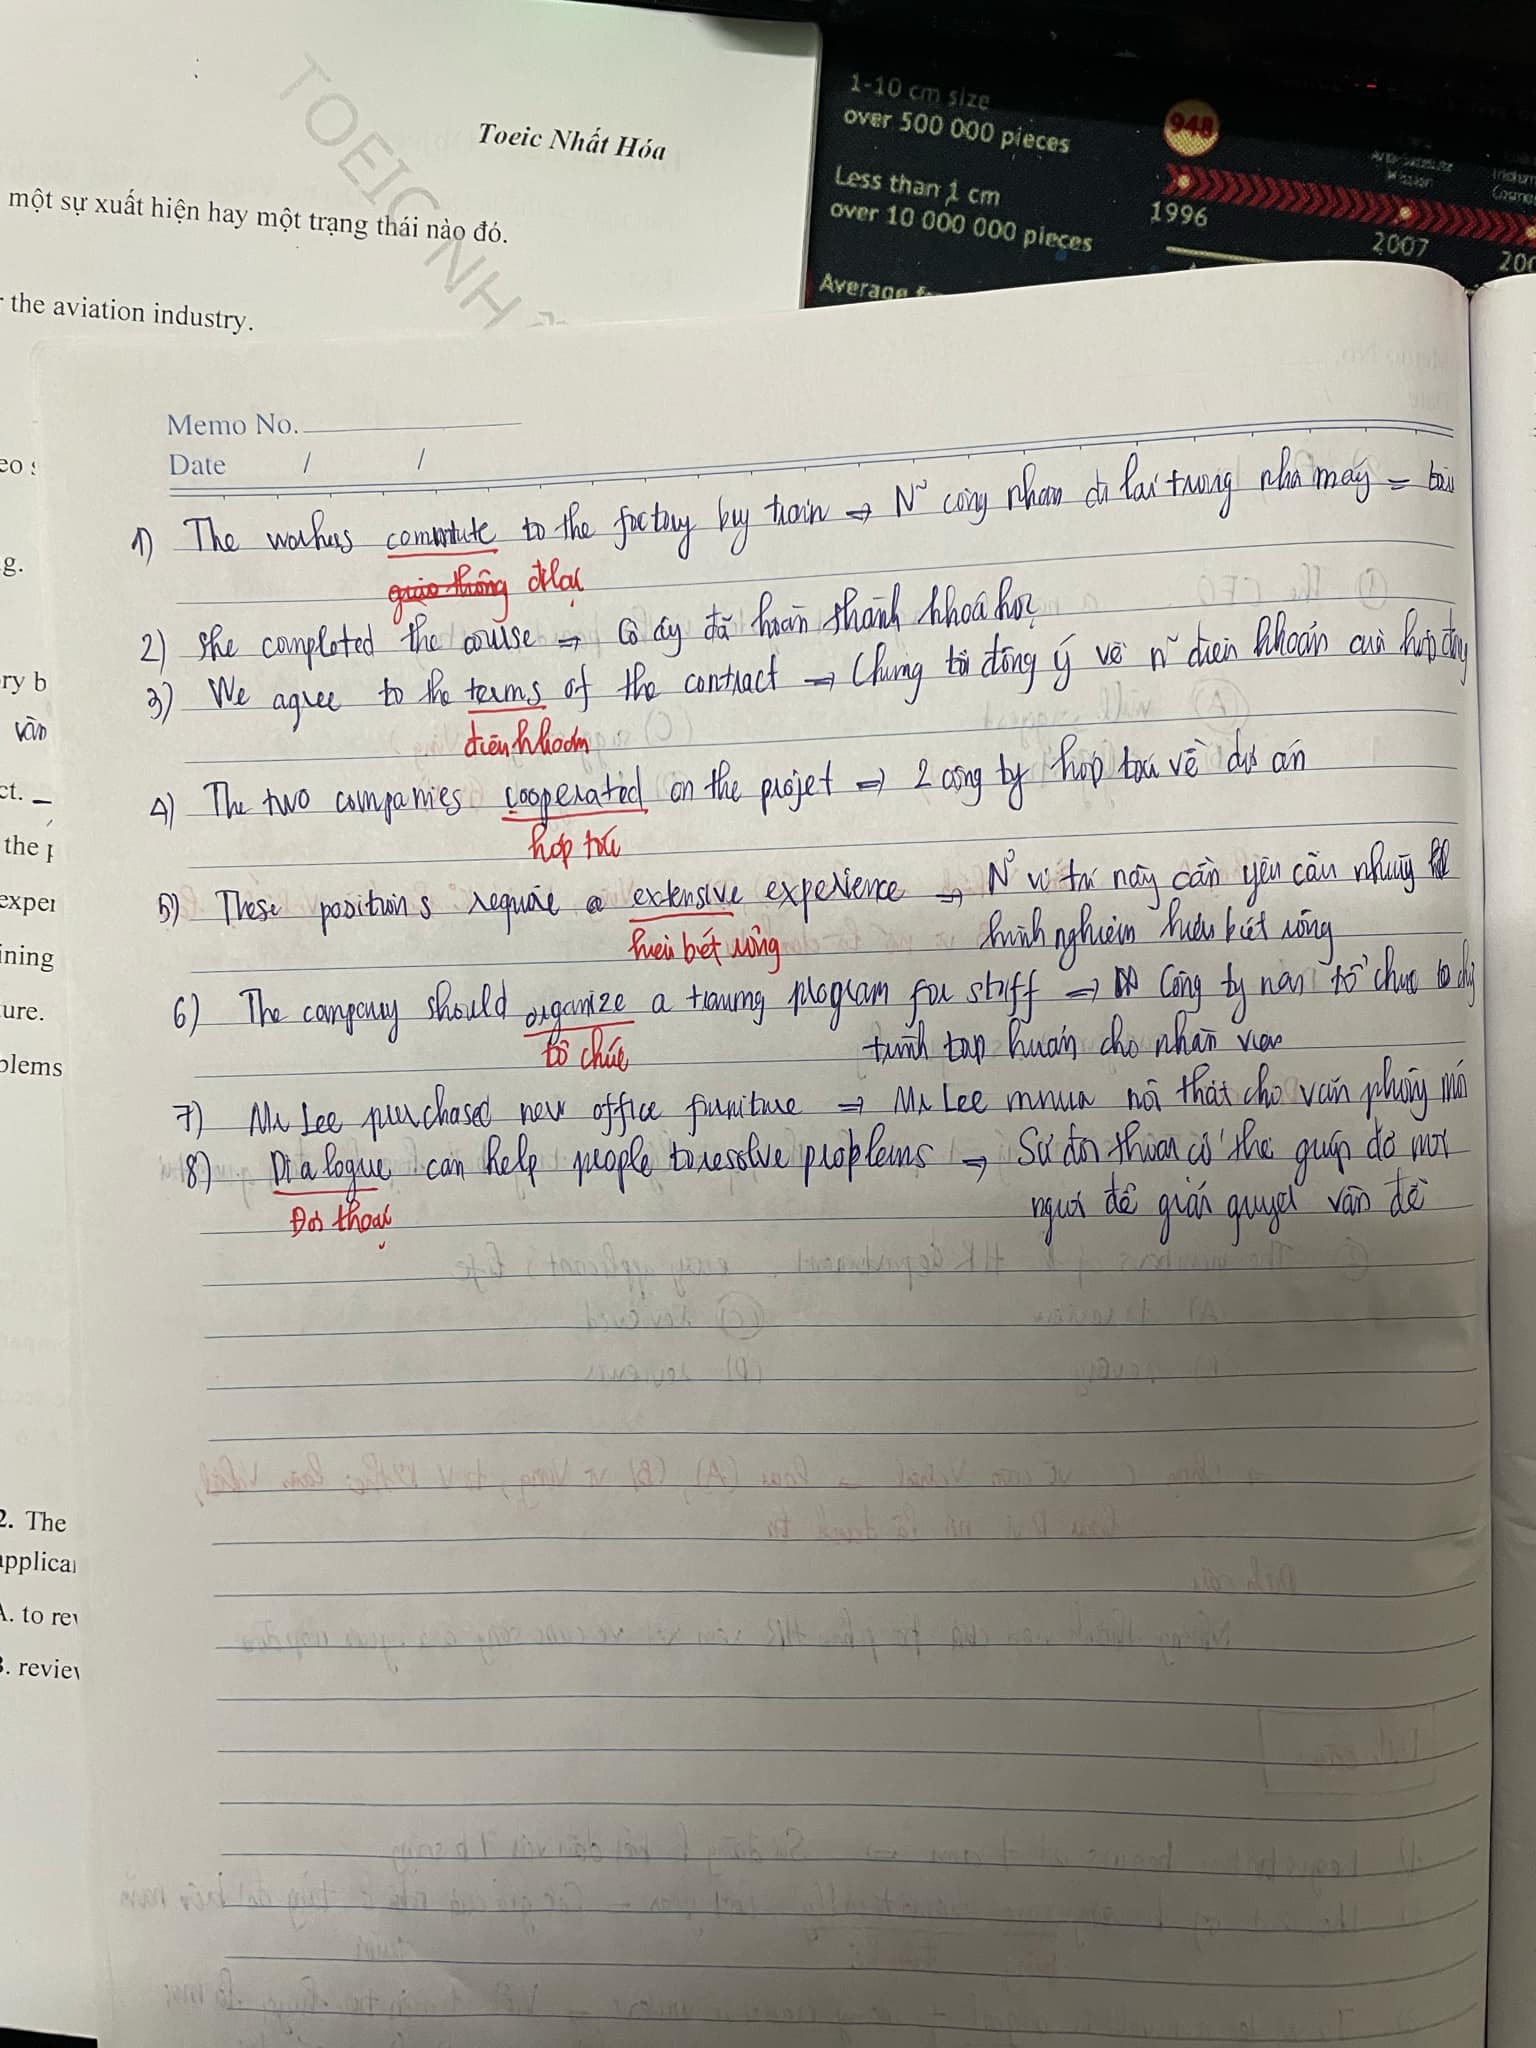 TOEIC NH
Toeic Nhất Hóa
một sự xuất hiện hay một trạng thái nào đó.
the aviation industry.
1-10 cm size
over 500 000 pieces
Less than 1 cm
over 10 000 000 pieces
Average
948
1996
2007
Memo No.
Date / /
1) The workers commute to the factory by train ⇒ N~ công nhân đi lại trong nhà máy = tàu
giao thông đi lại
2) She completed the course ⇒ Cô ấy đã hoàn thành khoá học
3) We agree to the terms of the contract ⇒ Chúng tôi đồng ý về n~ điều khoản của hợp đồng
điều khoản
4) The two companies cooperated on the projet ⇒ 2 công ty hợp tác về dự án
hợp tác
5) These positions require a extensive experience ⇒ N~ vị trí này cần yêu cầu những
hiểu biết rộng kinh nghiệm hiểu biết rộng
6) The company should organize a training program for staff ⇒ Công ty nên tổ chức
tổ chức trình tập huấn cho nhân viên
7) Mr Lee purchased new office furniture ⇒ Mr Lee mua nội thất cho văn phòng mới
8) Dialogue can help people to resolve problems ⇒ Sự đối thoại có thể giúp đỡ mọi
Đối thoại người để giải quyết vấn đề
g.
ry b
vàn
ct.
the
exper
ining
ure.
blems
2. The
applica
A. to rev
B. review